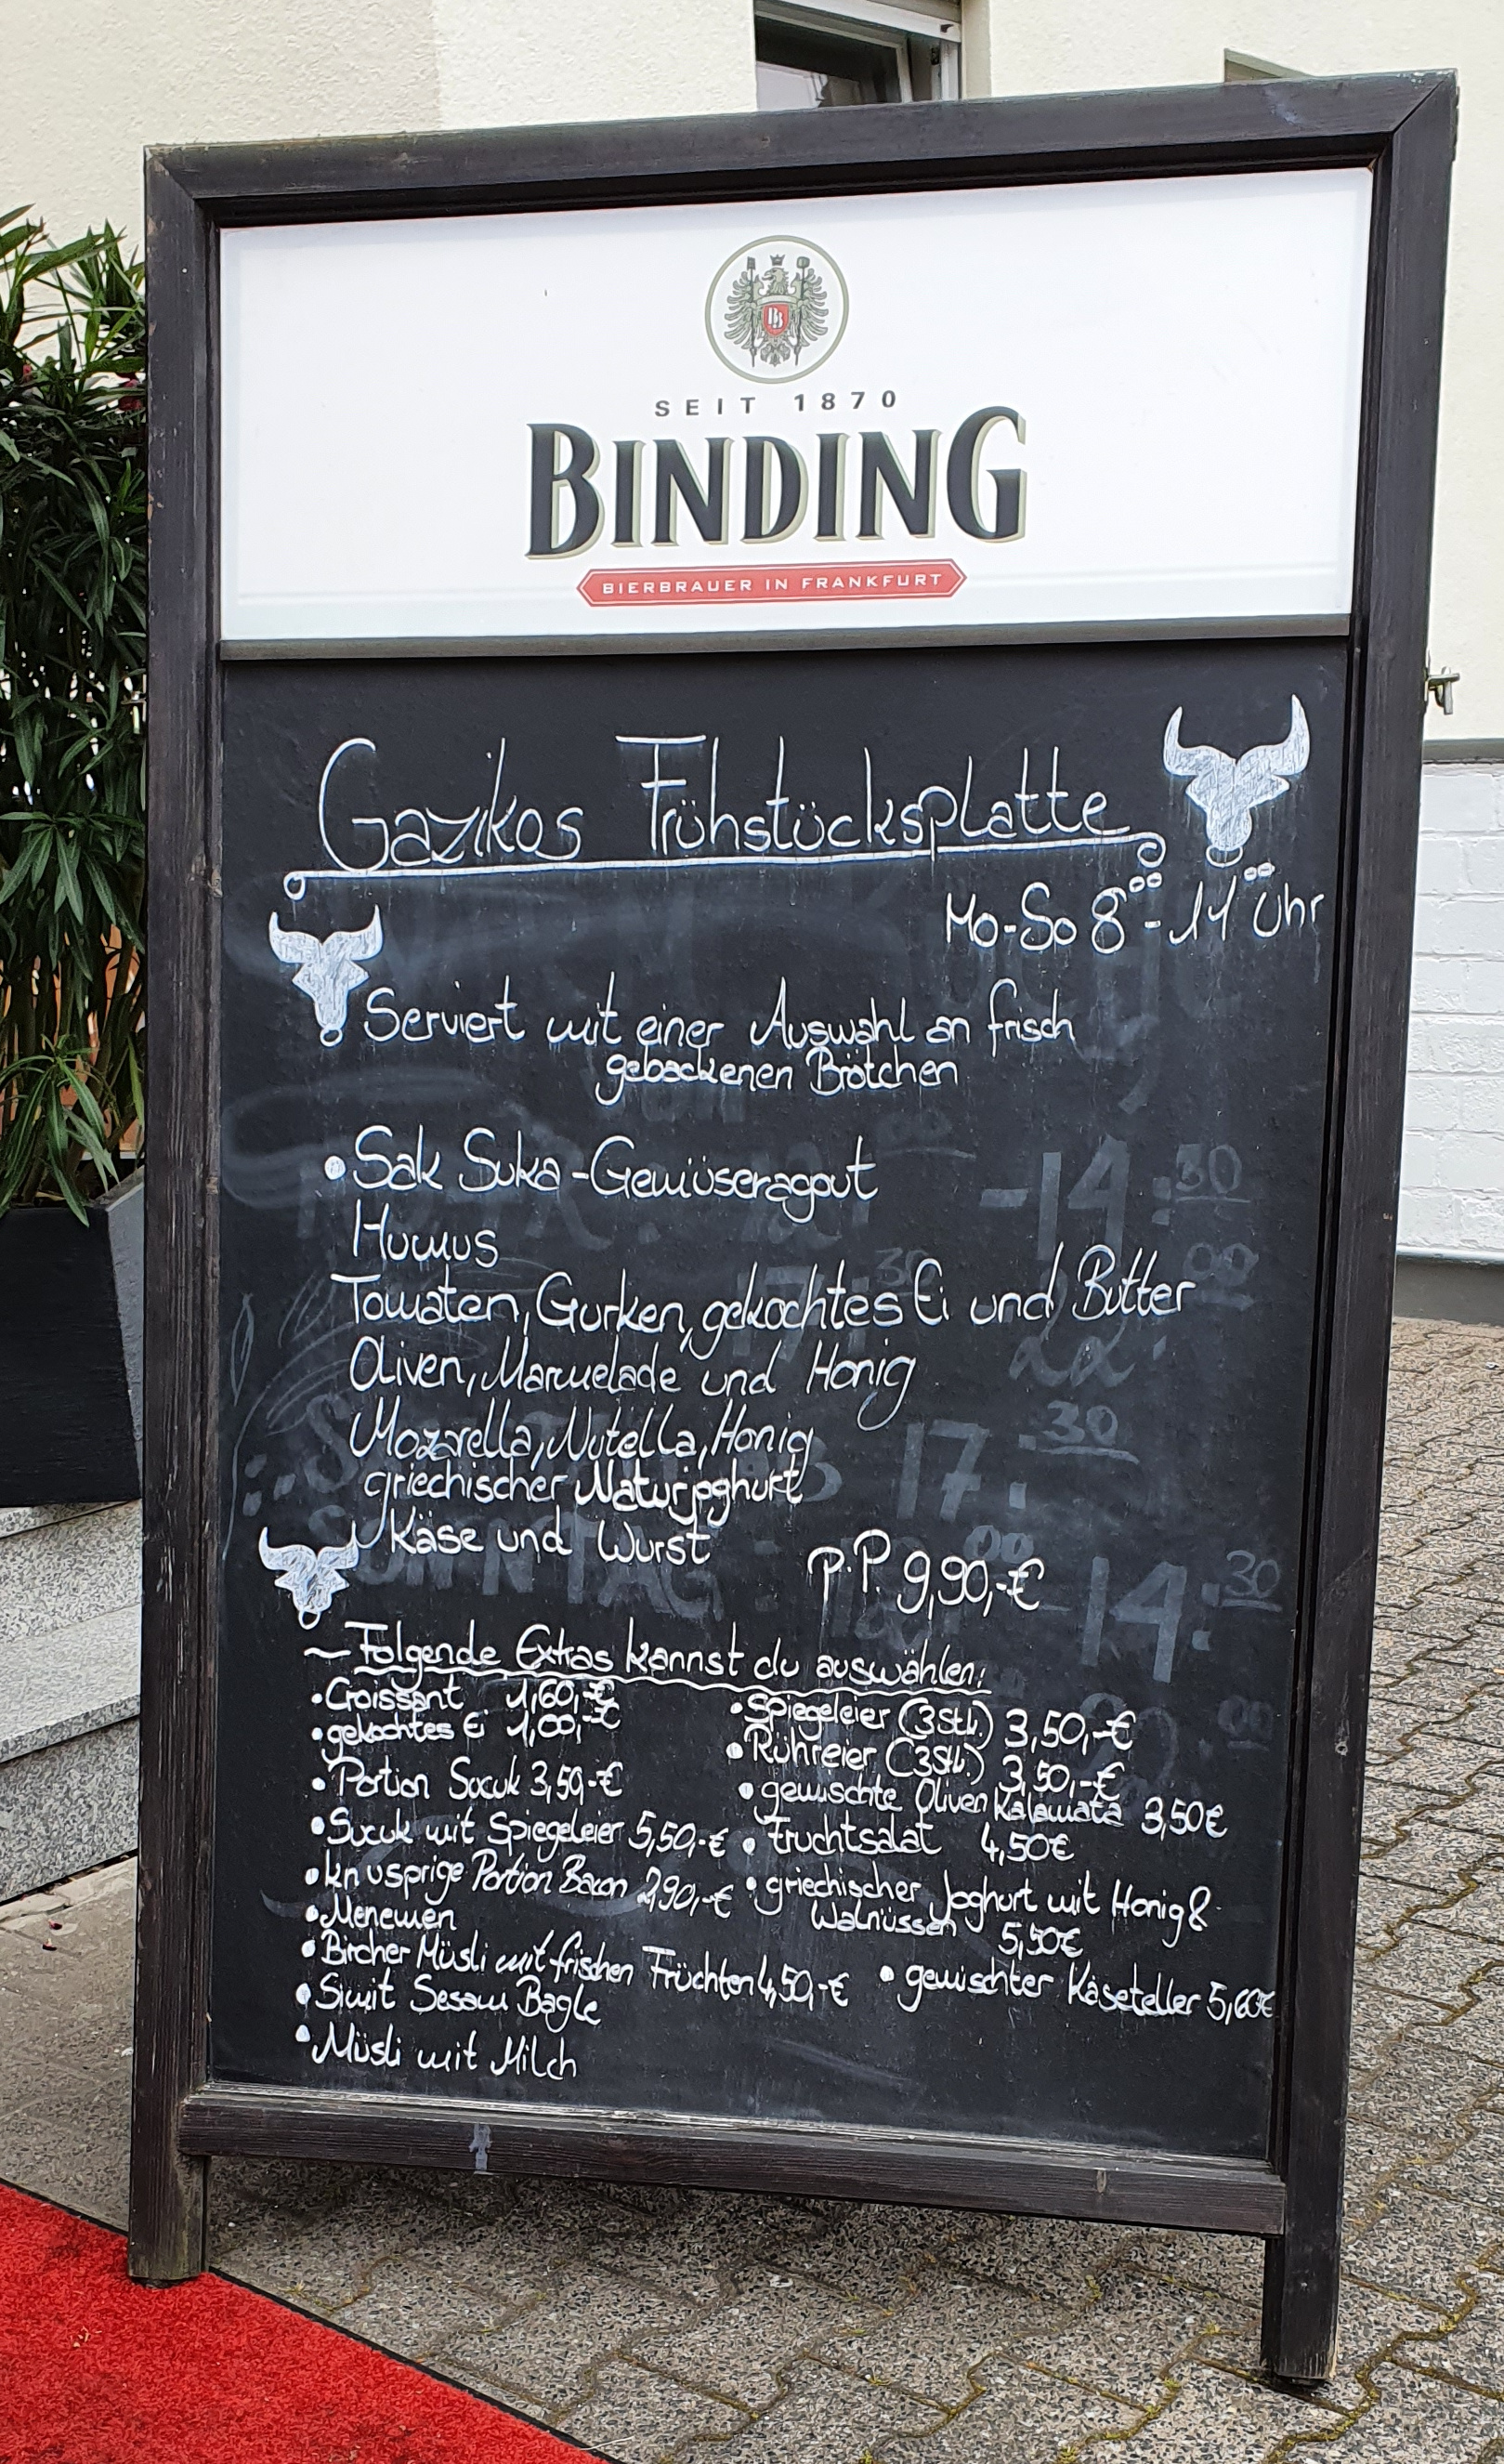 SEIT 1870
BINDING
BIERBRAUER IN FRANKFURT
Gazikos Frühstücksplatte
Mo-So 8⁰⁰-14⁰⁰ Uhr
Serviert mit einer Auswahl an frisch
gebackenen Brötchen
• Sak Suka-Gemüseragout
Humus
Tomaten, Gurken, gekochtes Ei und Butter
Oliven, Marmelade und Honig
Mozarella, Nutella, Honig
griechischer Naturjoghurt
Käse und Wurst
p.P. 9,90,-€
~ Folgende Extras kannst du auswählen:
• Croissant 1,60,-€
• gekochtes Ei 1,00,-€
• Portion Sucuk 3,50,-€
• Sucuk mit Spiegeleier 5,50,-€
• knusprige Portion Bacon 2,90,-€
• Menemen
• Bircher Müsli mit frischen Früchten 4,50,-€
• Simit Sesam Bagle
• Müsli mit Milch
• Spiegeleier (3Stk.) 3,50,-€
• Rühreier (3Stk.) 3,50,-€
• gemischte Oliven Kalamata 3,50€
• Fruchtsalat 4,50€
• griechischer Joghurt mit Honig &
Walnüssen 5,50€
• gemischter Käseteller 5,60€